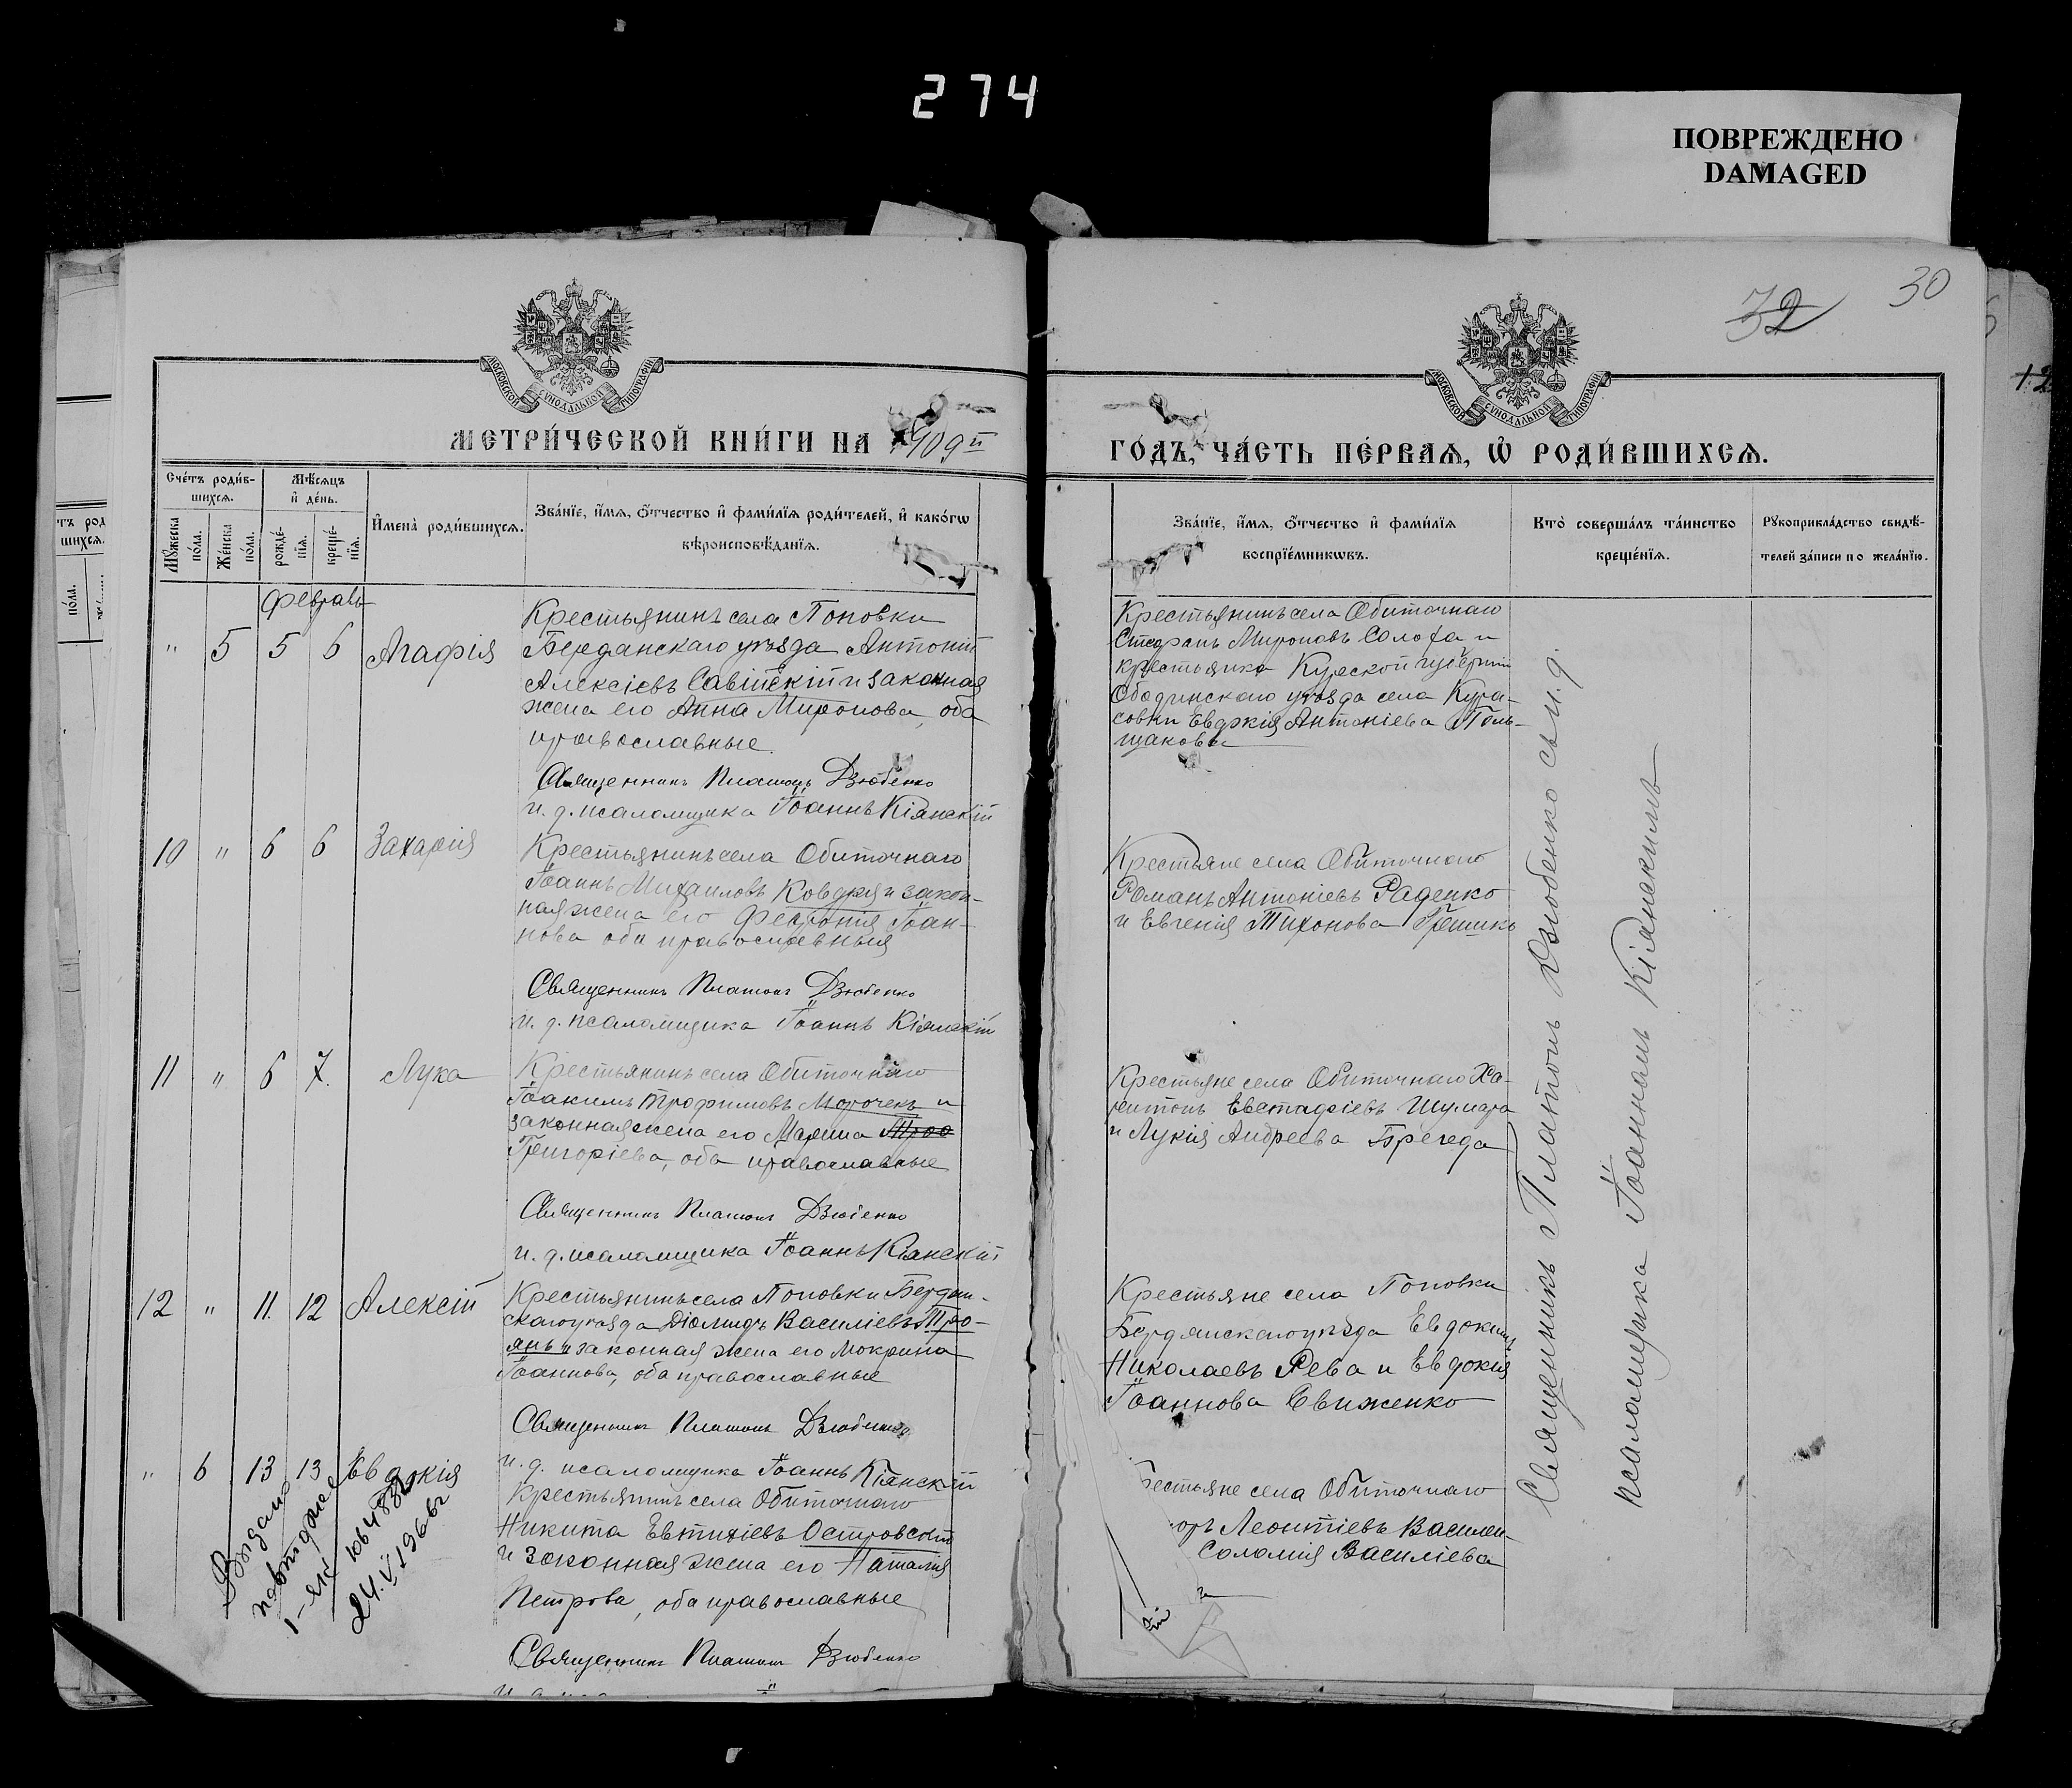 274
ПОВРЕЖДЕНО
DAMAGED
32
30
МОСКОВСКОЙ СУНОДАЛЬНОЙ ТИПОГРАФІИ
МОСКОВСКОЙ СУНОДАЛЬНОЙ ТИПОГРАФІИ
МЕТРИ́ЧЕСКОЙ КНИ́ГИ НА 1909й
ГО́ДЪ, ЧА́СТЬ ПЕ́РВАѦ, Ѡ҆ РОДИ́ВШИХСѦ.
Сче́тъ роди́в-
шихсѧ.
Мѣ́сѧцъ
и҆ де́нь.
Мꙋ́жеска
по́ла.
Же́нска
по́ла.
рожде́-
нїѧ.
креще́-
нїѧ.
И҆мена̀ роди́вшихсѧ.
Зва́нїе, и҆́мѧ, ѻ҆́тчество и҆ фами́лїѧ роди́телей, и҆ како́гѡ
вѣроисповѣ́данїѧ.
Зва́нїе, и҆́мѧ, ѻ҆́тчество и҆ фами́лїѧ
воспрїе́мникѡвъ.
Кто̀ соверша́лъ та́инство
креще́нїѧ.
Рꙋкоприкла́дство свидѣ́-
телей за́писи по жела́нїю.
Февраль
" 5 5 6 Агафія
Крестьянинъ села Поповки
Бердянскаго уѣзда Антоній
Алексіевъ Савійскій и законная
жена его Анна Миронова, оба
православные.
Священникъ Платонъ Дзюбенко
и. д. псаломщика Іоаннъ Кіянскій
Крестьянинъ села Обиточнаго
Стефанъ Мироновъ Солоха и
крестьянка Курской губерніи
Ободинскаго уѣзда села Кура-
совки Евдокія Антоніева Поль-
щакова
10 " 6 6 Захарія
Крестьянинъ села Обиточнаго
Іоаннъ Михаиловъ Ковдря и закон-
ная жена его Феvронія Іоан-
нова оба православныя
Священникъ Платонъ Дзюбенко
и. д. псаломщика Іоаннъ Кіянскій
Крестьяне села Обиточнаго
Романъ Антоніевъ Раденко
и Евгенія Тихонова Грешико
11 " 6 7. Лука
Крестьянинъ села Обиточнаго
Іоакимъ Трофимовъ Морочекъ и
законная жена его Марина Троо
Григоріева, оба православные
Священникъ Платонъ Дзюбенко
и. д. псаломщика Іоаннъ Кіянскій
Крестьяне села Обиточнаго Ха-
ритонъ Евстафіевъ Шумара
и Лукія Андреева Брегеда
12 " 11. 12 Алексій
Крестьянинъ села Поповки Бердян-
скаго уѣзда Діомидъ Василіевъ Тро-
янъ и законная жена его Мокрина
Іоаннова, оба православные
Священникъ Платонъ Дзюбенко
и. д. псаломщика Іоаннъ Кіянскій
Крестьяне села Поповки
Бердянскаго уѣзда Евдокимъ
Николаевъ Рева и Евдокія
Іоаннова Свиженко
" 6 13 13 Евдокія
Крестьянинъ села Обиточнаго
Никита Евтихіевъ Островскій
и законная жена его Наталія
Петрова, оба православные
Священникъ Платонъ Дзюбенко
естьяне села Обиточнаго
оръ Леонтіевъ Василен-
Соломія Василіева
Священникъ Платонъ Дзюбенко съ и. д.
псаломщика Іоанномъ Кіянскимъ
Видано
24.V.1966г